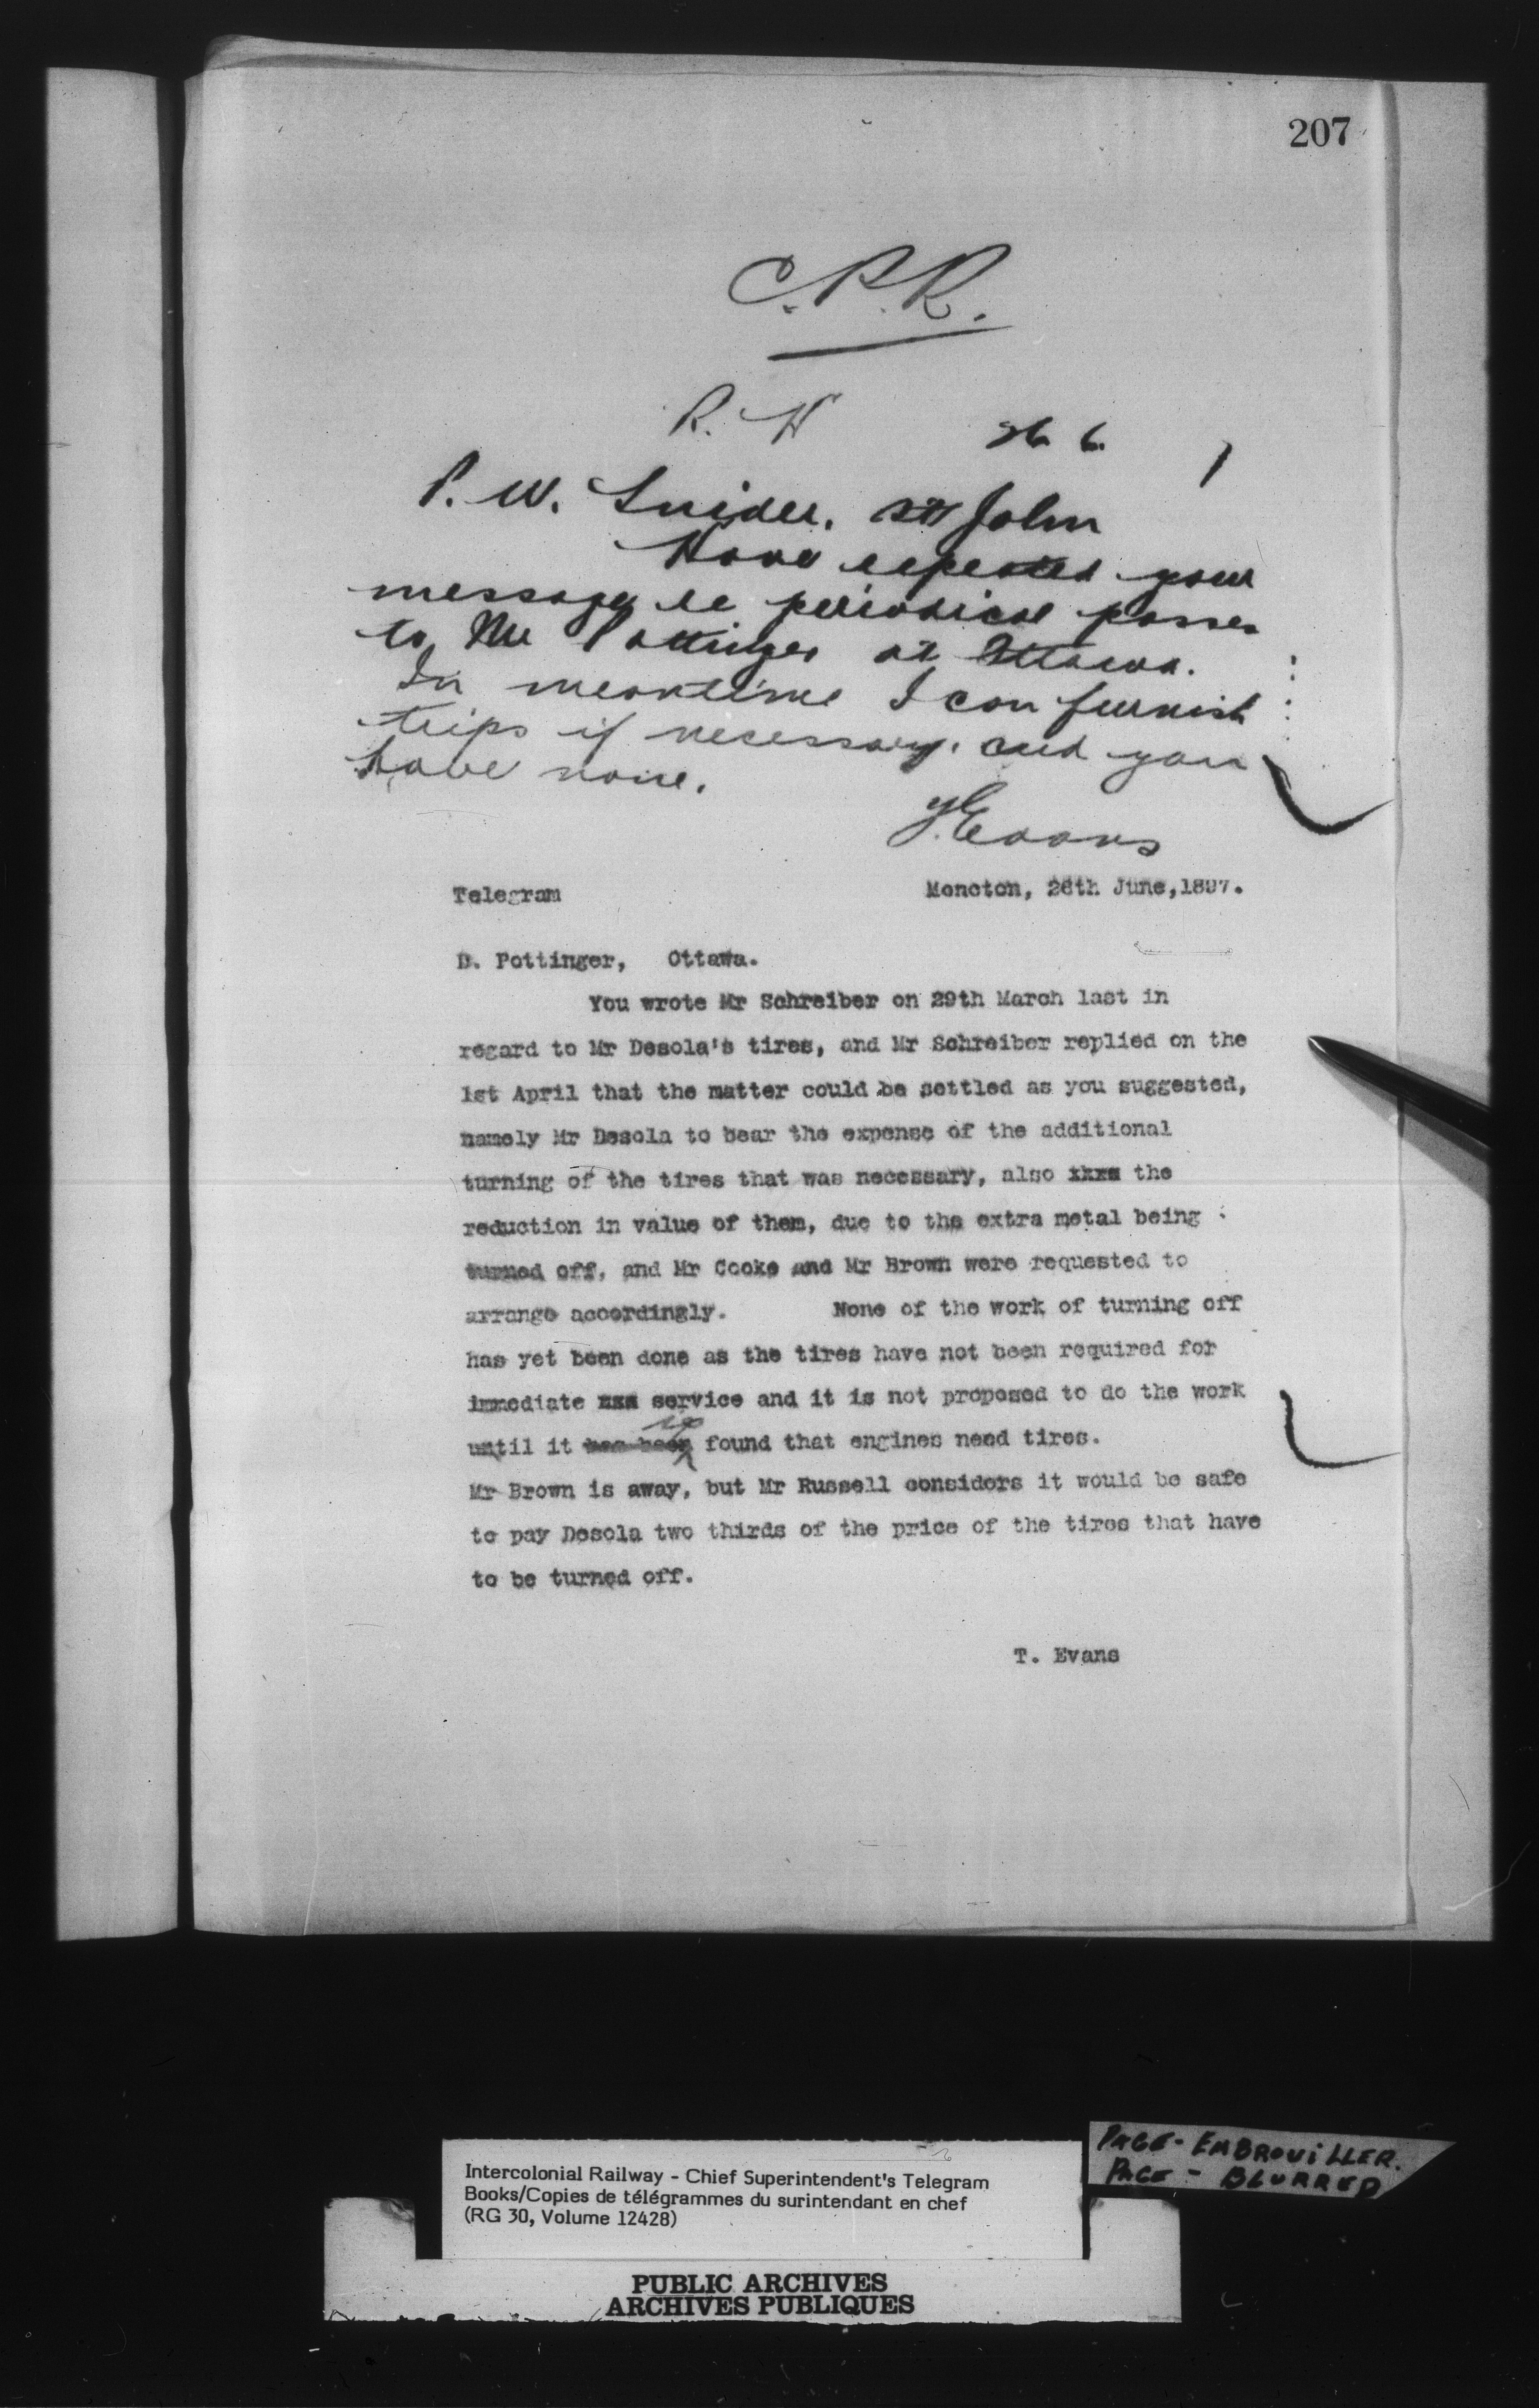 207
C.P.R.
R. H 26 6.
P. W. Snider, St John
Have repeated your
message re periodical passes
to Mr Pottinger at Ottawa.
In meantime I can furnish
trips if necessary, and you
have none.
Y. Evans
Telegram Moncton, 26th June, 1897.
D. Pottinger, Ottawa.
You wrote Mr Schreiber on 29th March last in
regard to Mr Desola's tires, and Mr Schreiber replied on the
1st April that the matter could be settled as you suggested,
namely Mr Desola to bear the expense of the additional
turning of the tires that was necessary, also xxxx the
reduction in value of them, due to the extra metal being
turned off, and Mr Cooke and Mr Brown were requested to
arrange accordingly. None of the work of turning off
has yet been done as the tires have not been required for
immediate xxx service and it is not proposed to do the work
until it has been is found that engines need tires.
Mr Brown is away, but Mr Russell considers it would be safe
to pay Desola two thirds of the price of the tires that have
to be turned off.
T. Evans
PAGE - EMBROUILLER.
PAGE - BLURRED
Intercolonial Railway - Chief Superintendent's Telegram
Books/Copies de télégrammes du surintendant en chef
(RG 30, Volume 12428)
PUBLIC ARCHIVES
ARCHIVES PUBLIQUES